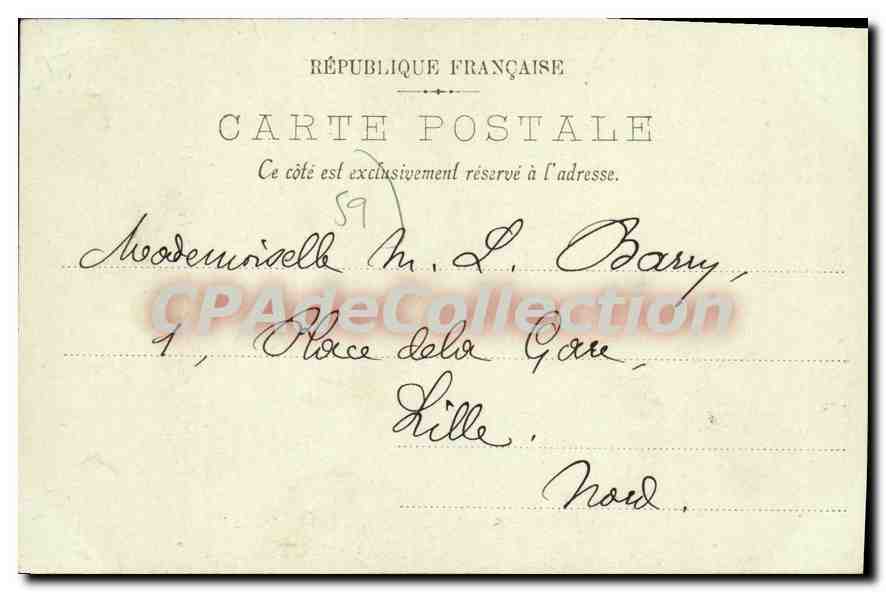 RÉPUBLIQUE FRANÇAISE
CARTE POSTALE
Ce côté est exclusivement réservé à l'adresse.
59
Mademoiselle M. L. Barry,
CPAdeCollection
1, Place de la Gare,
Lille.
Nord.